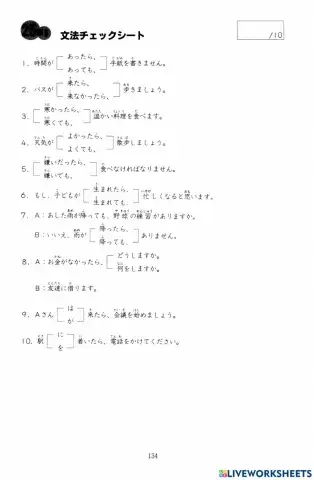 文法チェックシート
/10
1. 時間が［あったら、
あっても、］手紙を書きません。
2. バスが［来たら、
来なかったら、］歩きましょう。
3. ［寒かったら、
寒くても、］温かい料理を食べます。
4. 天気が［よかったら、
よくても、］散歩しましょう。
5. ［嫌いだったら、
嫌いでも、］食べなければなりません。
6. もし、子どもが［生まれたら、
生まれても、］忙しくなると思います。
7. A：あした雨が降っても、野球の練習がありますか。
B：いいえ、雨が［降ったら、
降っても、］ありません。
8. A：お金がなかったら、［どうしますか。
何をしますか。
B：友達に借ります。
9. Aさん［は
が］来たら、会議を始めましょう。
10. 駅［に
を］着いたら、電話をかけてください。
134
LIVEWORKSHEETS